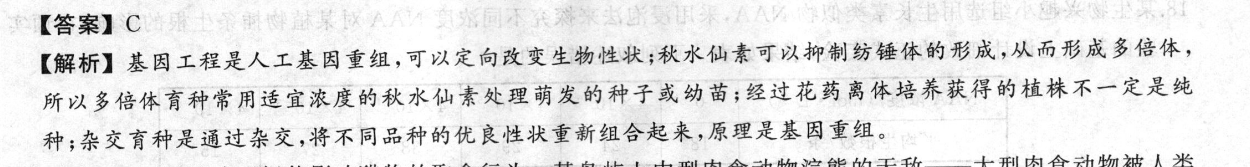 【答案】C
【解析】基因工程是人工基因重组,可以定向改变生物性状;秋水仙素可以抑制纺锤体的形成,从而形成多倍体,
所以多倍体育种常用适宜浓度的秋水仙素处理萌发的种子或幼苗;经过花药离体培养获得的植株不一定是纯
种;杂交育种是通过杂交,将不同品种的优良性状重新组合起来,原理是基因重组。